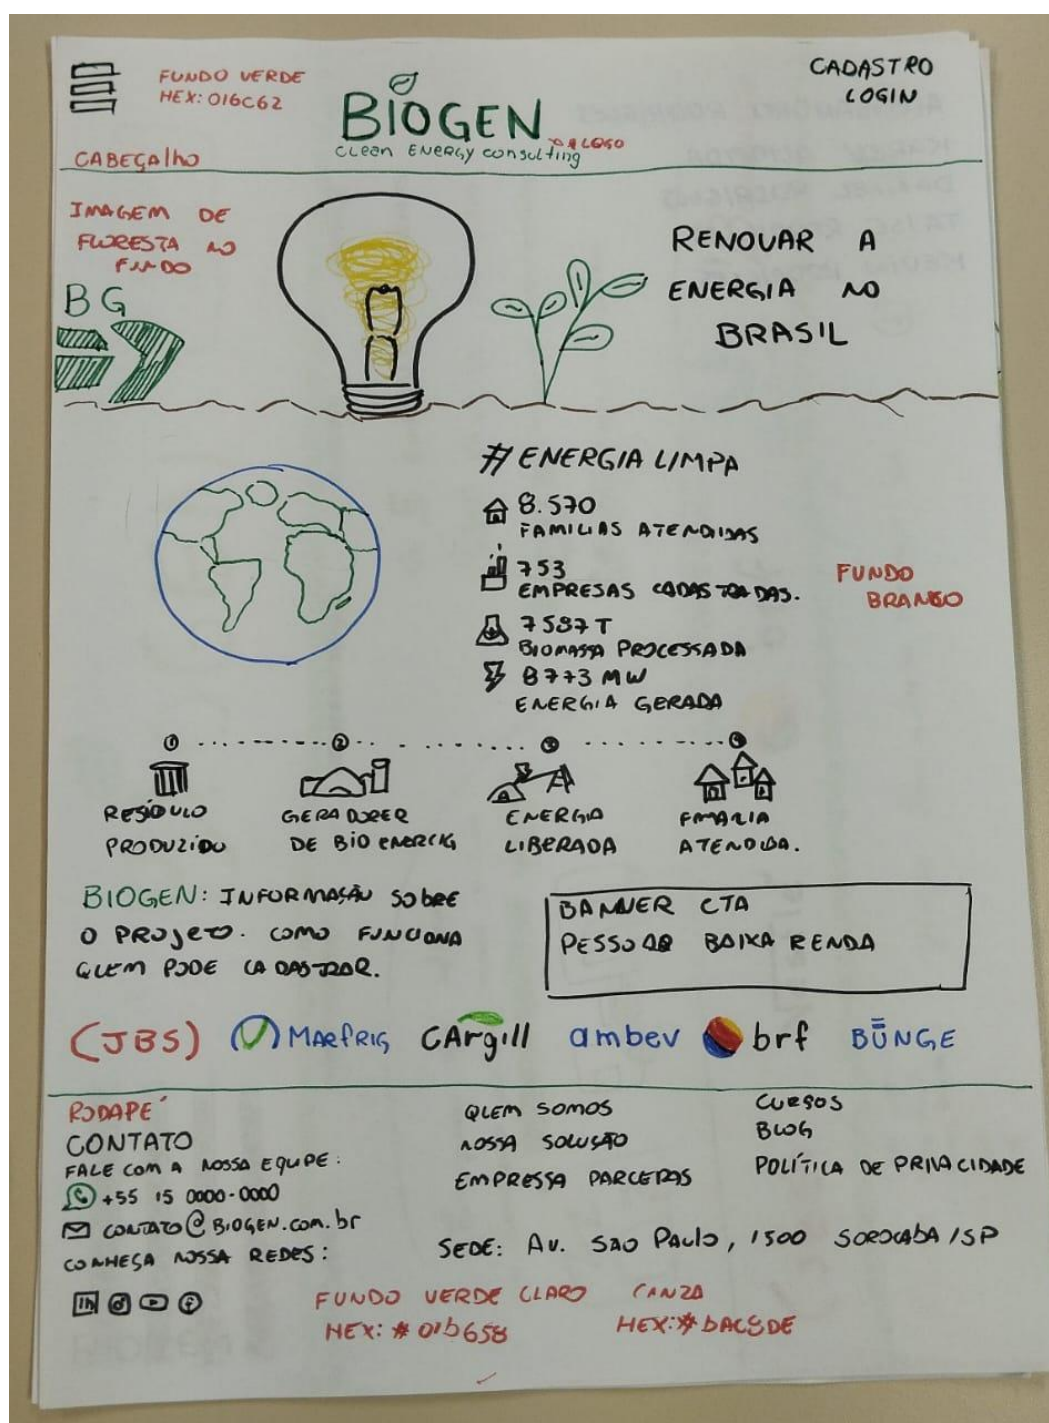 FUNDO VERDE
HEX: 016C62
CADASTRO
LOGIN
BIOGEN
CLEAN ENERGY consulting
LOGO
CABEÇAlho
IMAGEM DE
FLORESTA NO
FUNDO
BG
RENOVAR A
ENERGIA NO
BRASIL
# ENERGIA LIMPA
8.570
FAMILIAS ATENDIDAS
753
EMPRESAS CADASTRADAS.
7587 T
BIOMASSA PROCESSADA
8773 MW
ENERGIA GERADA
FUNDO
BRANCO
1 2 3 4
RESÍDULO
PRODUZIDO
GERADORER
DE BIO ENERCIG
ENERGIA
LIBERADA
FMAZLIA
ATENDIDA.
BIOGEN: INFORMAÇÃO SOBRE
O PROJETO. COMO FUNCIONA
QUEM PODE CADASTRAR.
BANNER CTA
PESSOAS BAIXA RENDA
(JBS) MARFRIG CArgill ambev brf BUNGE
RODAPÉ
CONTATO
FALE COM A NOSSA EQUIPE:
+55 15 0000-0000
CONTATO@BIOGEN.com.br
CONHEÇA NOSSA REDES:
in
QUEM SOMOS
NOSSA SOLUÇÃO
EMPRESSA PARCERAS
CURSOS
BLOG
POLÍTICA DE PRIVACIDADE
SEDE: AV. SAO PAULO, 1500 SOROCABA/SP
FUNDO VERDE CLARO
HEX: # 01b658
CANZA
HEX: # bAC8DE